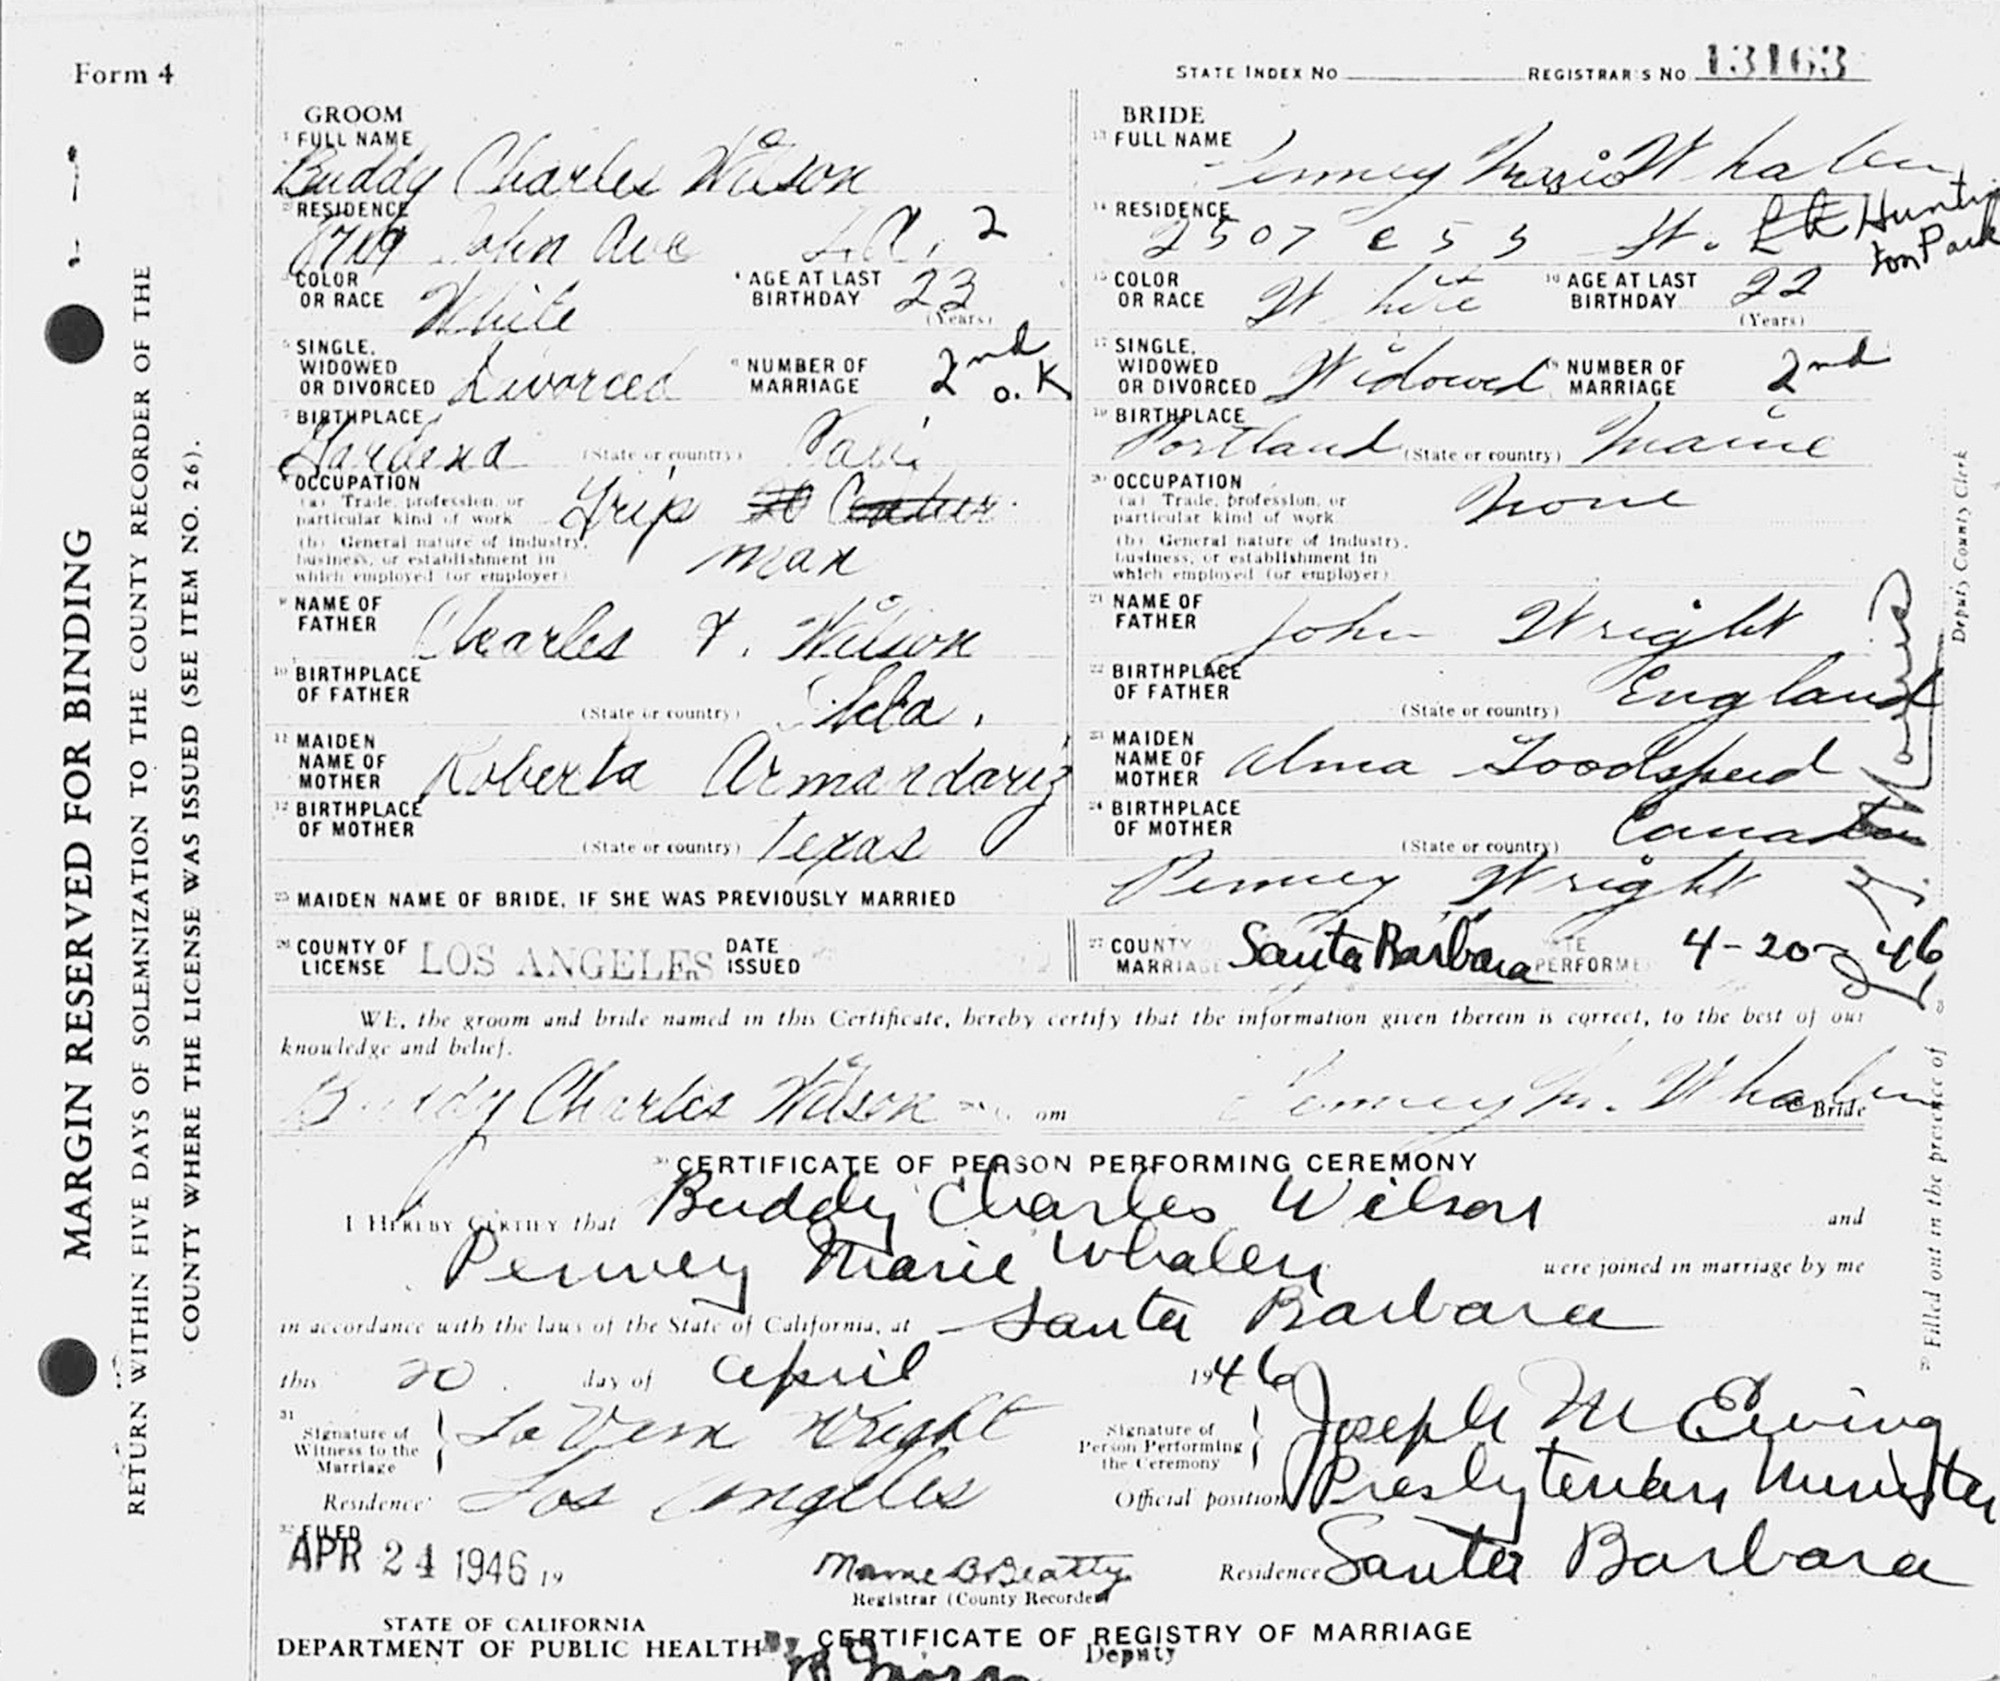 Form 4
STATE INDEX NO
REGISTRAR'S NO 13163
MARGIN RESERVED FOR BINDING
RETURN WITHIN FIVE DAYS OF SOLEMNIZATION TO THE COUNTY RECORDER OF THE
COUNTY WHERE THE LICENSE WAS ISSUED (SEE ITEM NO. 26).
GROOM
1 FULL NAME
Buddy Charles Wilson
2 RESIDENCE
John Ave L.A. 2
3 COLOR OR RACE White
4 AGE AT LAST BIRTHDAY 23
(Years)
5 SINGLE, WIDOWED OR DIVORCED Divorced
6 NUMBER OF MARRIAGE 2nd o.K
7 BIRTHPLACE
Gardena (State or country) Cali
8 OCCUPATION
(a) Trade, profession, or particular kind of work Grip
man
(b) General nature of industry, business, or establishment in which employed (or employer)
9 NAME OF FATHER Charles Wilson
10 BIRTHPLACE OF FATHER
(State or country)
11 MAIDEN NAME OF MOTHER Roberta Armandariz
12 BIRTHPLACE OF MOTHER
(State or country) Texas
BRIDE
13 FULL NAME
Penney Marie Whalen
14 RESIDENCE
2507 E 55 St. Huntington Park
15 COLOR OR RACE White
16 AGE AT LAST BIRTHDAY 22
(Years)
17 SINGLE, WIDOWED OR DIVORCED Widowed
18 NUMBER OF MARRIAGE 2nd
19 BIRTHPLACE
Portland (State or country) Maine
20 OCCUPATION
(a) Trade, profession, or particular kind of work None
(b) General nature of industry, business, or establishment in which employed (or employer)
21 NAME OF FATHER John Wright
22 BIRTHPLACE OF FATHER
(State or country) England
23 MAIDEN NAME OF MOTHER Alma Goodspeed
24 BIRTHPLACE OF MOTHER
(State or country) Canada
25 MAIDEN NAME OF BRIDE, IF SHE WAS PREVIOUSLY MARRIED Penney Wright
26 COUNTY OF LICENSE LOS ANGELES DATE ISSUED
27 COUNTY MARRIAGE Santa Barbara DATE PERFORMED 4-20-46
WE, the groom and bride named in this Certificate, hereby certify that the information given therein is correct, to the best of our
knowledge and belief.
Buddy Charles Wilson Groom
Penney M. Whalen Bride
Deputy County Clerk
29 Filled out in the presence of
30 CERTIFICATE OF PERSON PERFORMING CEREMONY
I HEREBY CERTIFY that Buddy Charles Wilson and
Penney Marie Whalen were joined in marriage by me
in accordance with the laws of the State of California, at Santa Barbara
this 20 day of April 1946
31 Signature of Witness to the Marriage LaVern Wright
Residence Los Angeles
Signature of Person Performing the Ceremony Joseph M Ewing
Official position Presbyterian Minister
Residence Santa Barbara
32 FILED
APR 24 1946 19
Mame B Beatty
Registrar (County Recorder)
STATE OF CALIFORNIA
DEPARTMENT OF PUBLIC HEALTH
CERTIFICATE OF REGISTRY OF MARRIAGE
Deputy